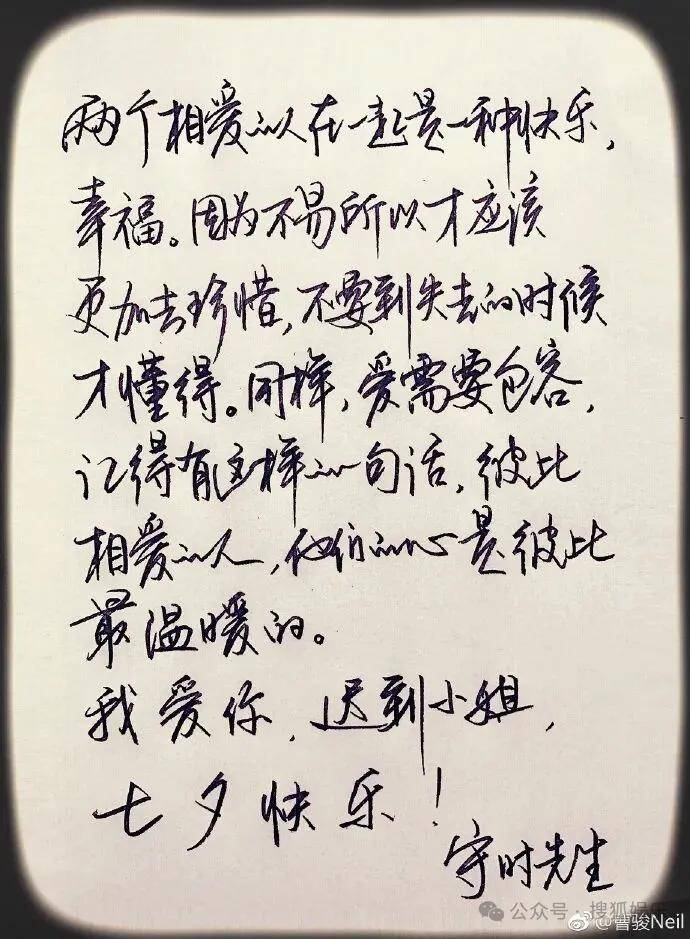 两个相爱的人在一起是一种快乐，
幸福。因为不易所以才应该
更加去珍惜，不要到失去的时候
才懂得。同样，爱需要包容，
记得有这样的一句话，彼此
相爱的人，他们的心是彼此
最温暖的。
我爱你，迟到小姐，
七夕快乐！
守时先生
公众号·搜狐娱乐
@曹骏Neil